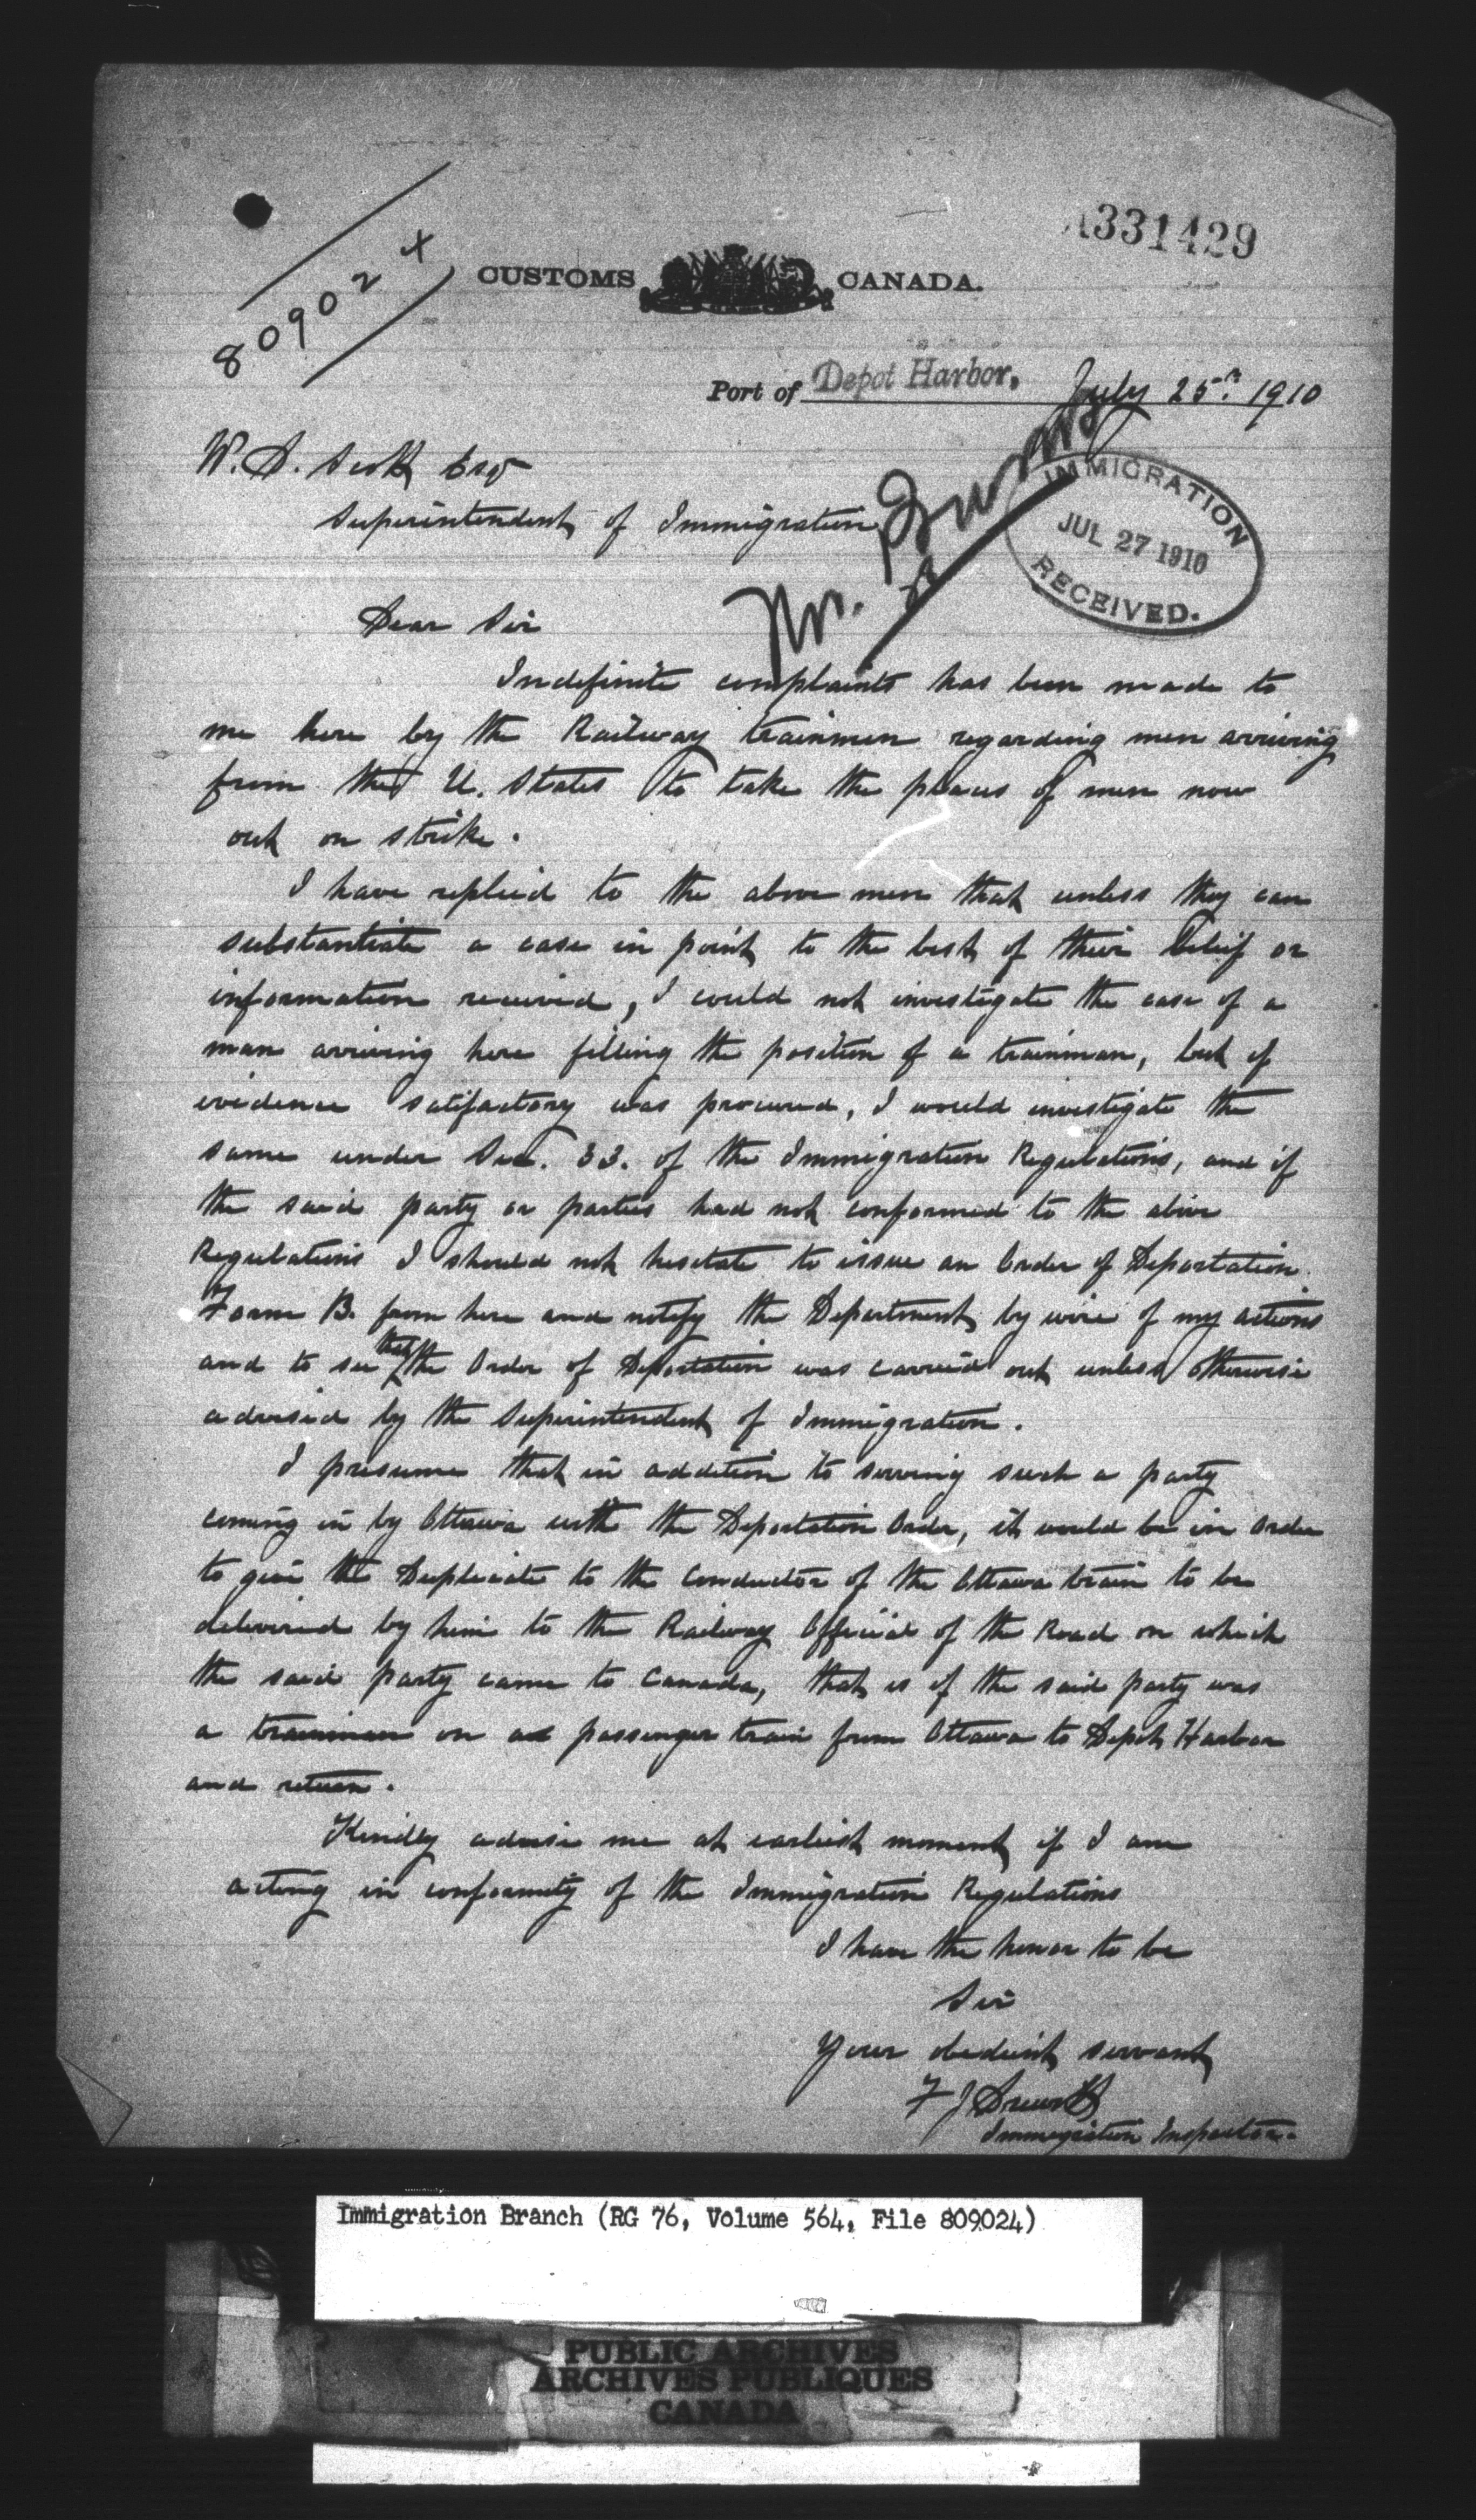 A331429
809024
CUSTOMS CANADA.
Port of Depot Harbor, July 25th 1910
W. D. Scott Esq
Superintendent of Immigration
Mr.
IMMIGRATION
JUL 27 1910
RECEIVED.
Dear Sir
Indefinite complaints has been made to
me here by the Railway trainmen regarding men arriving
from the U. States to take the places of men now
out on strike.
I have replied to the above men that unless they can
substantiate a case in point to the best of their belief or
information received, I could not investigate the case of a
man arriving here filling the position of a trainman, but if
evidence satifactory was procured, I would investigate the
same under Sec. 33. of the Immigration Regulations, and if
the said party or parties had not conformed to the above
Regulations I should not hesitate to issue an Order of Deportation
Form B. from here and notify the Department by wire of my actions
and to see that the Order of Deportation was carried out unless otherwise
advised by the Superintendent of Immigration.
I presume that in addition to serving such a party
coming in by Ottawa with the Deportation Order, it would be in order
to give the Duplicate to the Conductor of the Ottawa train to be
delivered by him to the Railway Official of the Road on which
the said party came to Canada, that is if the said party was
a trainman on a passenger train from Ottawa to Depot Harbor
and return.
Kindly advise me at earliest moment if I am
acting in conformity of the Immigration Regulations
I have the honor to be
Sir
Your obedient servant
F J
Immigration Inspector.
Immigration Branch (RG 76, Volume 564, File 809024)
PUBLIC ARCHIVES
ARCHIVES PUBLIQUES
CANADA